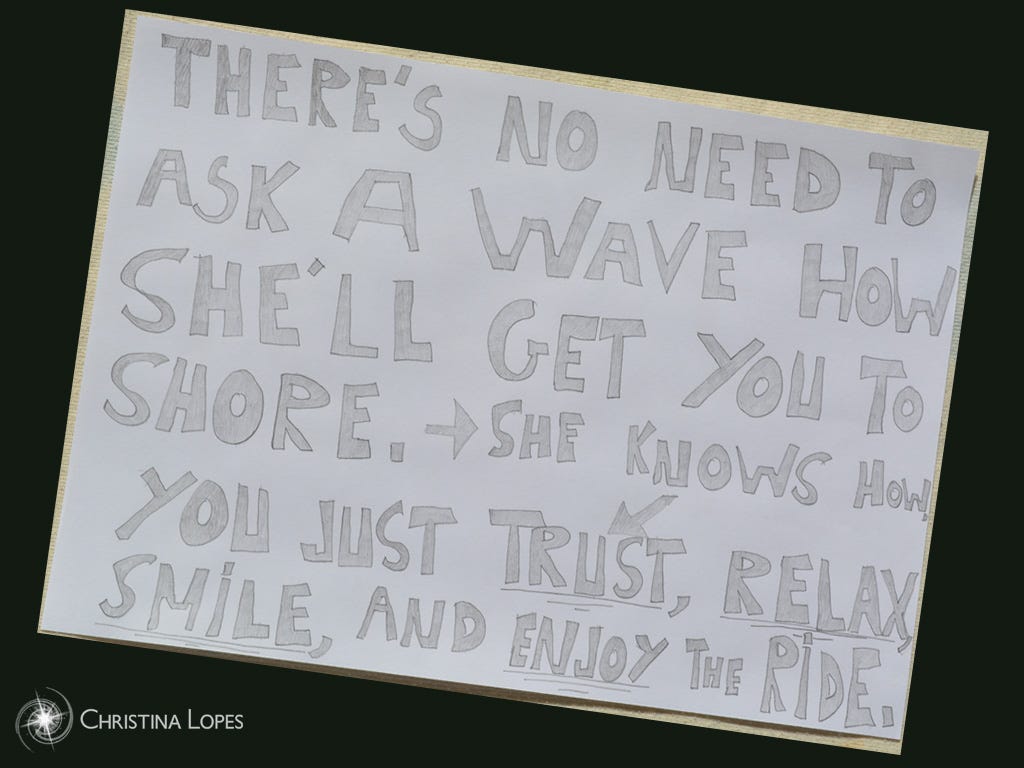 THERE'S NO NEED TO
ASK A WAVE HOW
SHE'LL GET YOU TO
SHORE. → SHE KNOWS HOW,
YOU JUST TRUST, RELAX,
SMILE, AND ENJOY THE RIDE.
CHRISTINA LOPES